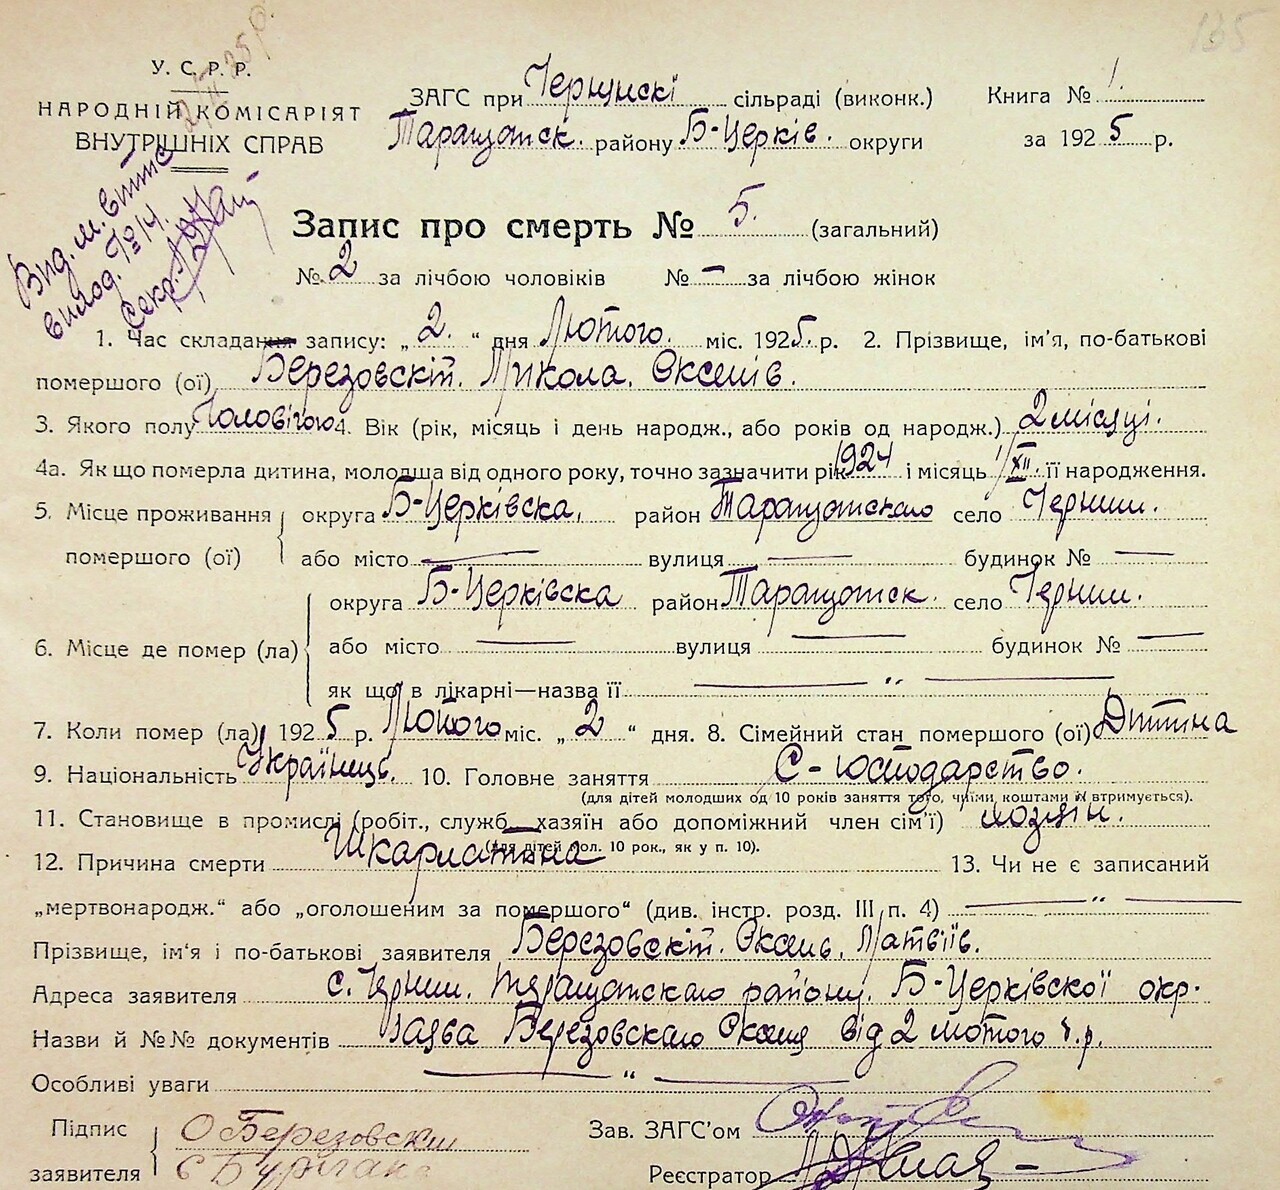 135
У. С. Р. Р.
НАРОДНІЙ КОМІСАРІЯТ
ВНУТРІШНІХ СПРАВ
ЗАГС при Чернинскі сільраді (виконк.)
Таращанск. району Б-Церків. округи
Книга № 1.
за 1925 р.
Вид. м. витяг
Секр.
Запис про смерть № 5. (загальний)
№ 2 за лічбою чоловіків № — за лічбою жінок
1. Час складання запису: „2.“ дня Лютого міс. 1925 р. 2. Прізвище, ім'я, по-батькові
помершого (ої) Березовскій. Микола. Оксенів.
3. Якого полу Чоловічого 4. Вік (рік, місяць і день народж., або років од народж.) 2 місяці.
4а. Як що померла дитина, молодша від одного року, точно зазначити рік 1924 і місяць 1/XII її народження.
5. Місце проживання помершого (ої)
округа Б-Церківска, район Таращанскаго село Чернин.
або місто — вулиця — будинок № —
6. Місце де помер (ла)
округа Б-Церківска район Таращанск. село Чернин.
або місто — вулиця — будинок № —
як що в лікарні—назва її — „ —
7. Коли помер (ла) 1925 р. Лютого міс. „2“ дня. 8. Сімейний стан помершого (ої) Дитина
9. Національність Українець. 10. Головне заняття С-господарство.
(для дітей молодших од 10 років заняття того, чиїми коштами їх втримується).
11. Становище в промислі (робіт., служб., хазяїн або допоміжний член сім'ї) хозяін.
(для дітей мол. 10 рок., як у п. 10).
12. Причина смерти Шкарлатина 13. Чи не є записаний
„мертвонародж.“ або „оголошеним за помершого“ (див. інстр. розд. III п. 4) — „ —
Прізвище, ім'я і по-батькові заявителя Березовскій. Оксень. Матвіїв.
Адреса заявителя с. Чернин. Таращанскаго району. Б-Церківскої окр.
Назви й №№ документів заява Березовскаго Оксеня від 2 лютого ц.р.
Особливі уваги — „ —
Підпис заявителя
О Березовский
Зав. ЗАГС'ом
Реєстратор